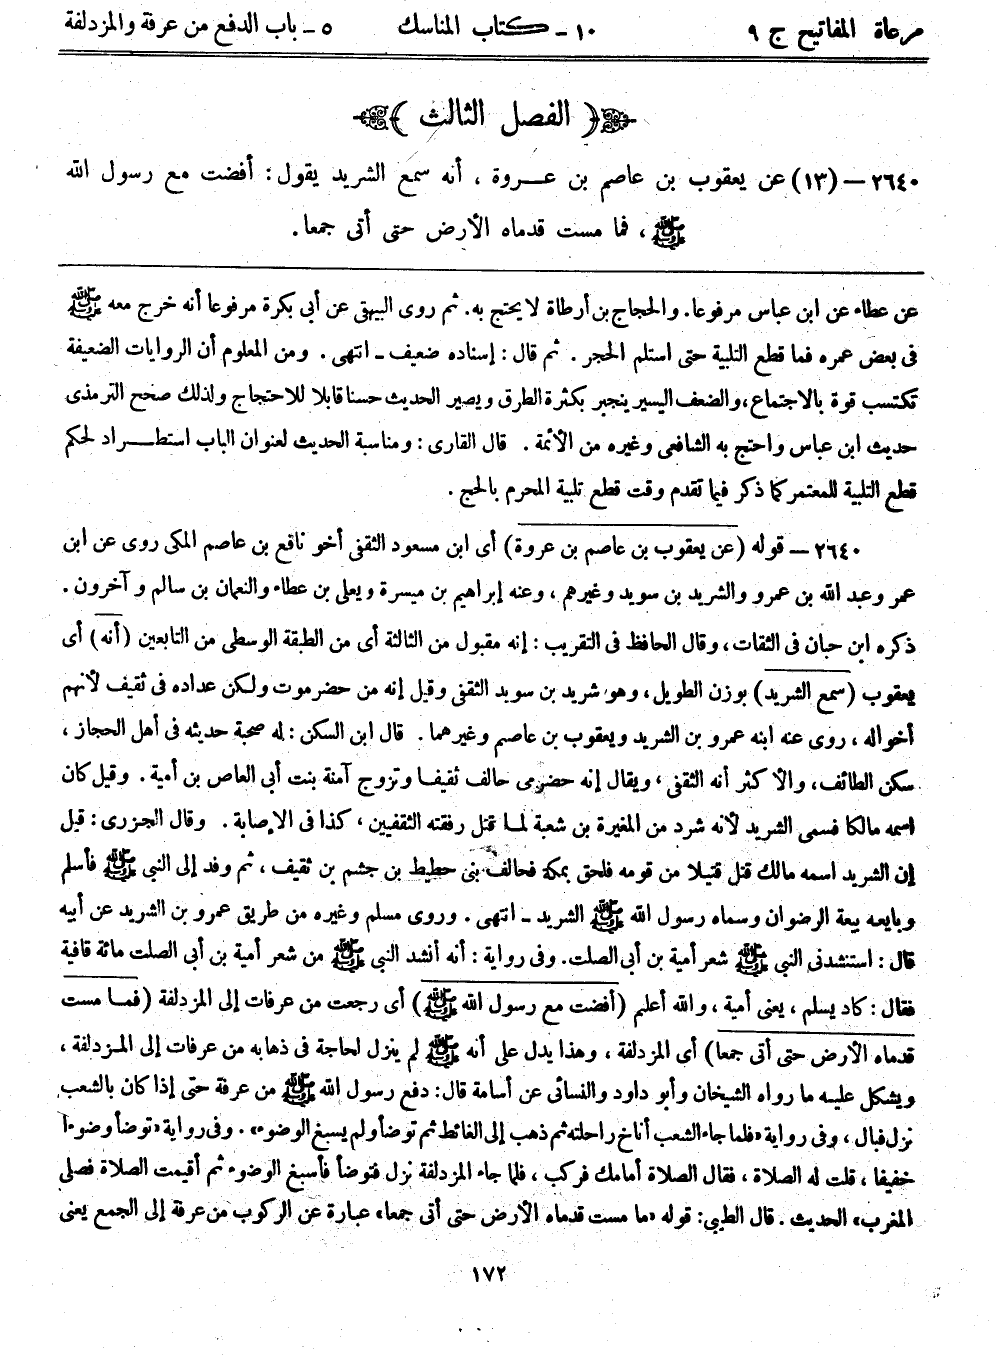 مرعاة المفاتيح ج ٩ ١٠ - كتاب المناسك ٥ - باب الدفع من عرفة والمزدلفة
﴿ الفصل الثالث ﴾
٢٦٤٠ - (١٣) عن يعقوب بن عاصم بن عـــروة ، أنه سمع الشريد يقول : أفضت مع رسول الله
ﷺ ، فما مست قدماه الأرض حتى أتى جمعا .
عن عطاء عن ابن عباس مرفوعا. والحجاج بن أرطاة لا يحتج به. ثم روى البيهقى عن أبى بكرة مرفوعا أنه خرج معه ﷺ
فى بعض عمره فما قطع التلبية حتى استلم الحجر . ثم قال : إسناده ضعيف - انتهى . ومن المعلوم أن الروايات الضعيفة
تكتسب قوة بالاجتماع، والضعف اليسير ينجبر بكثرة الطرق ويصير الحديث حسنا قابلا للاحتجاج ولذلك صحح الترمذى
حديث ابن عباس واحتج به الشافعى وغيره من الأئمة . قال القارى : ومناسبة الحديث لعنوان الباب استطـــراد لحكم
قطع التلبية للمعتمر كما ذكر فيما تقدم وقت قطع تلبية المحرم بالحج .
٢٦٤٠ - قوله (عن يعقوب بن عاصم بن عروة) أى ابن مسعود الثقفى أخو نافع بن عاصم المكى روى عن ابن
عمر وعبد الله بن عمرو والشريد بن سويد وغيرهم ، وعنه إبراهيم بن ميسرة ويعلى بن عطاء والنعمان بن سالم وآخرون .
ذكره ابن حبان فى الثقات ، وقال الحافظ فى التقريب : إنه مقبول من الثالثة أى من الطبقة الوسطى من التابعين (أنه) أى
يعقوب (سمع الشريد) بوزن الطويل ، وهو شريد بن سويد الثقفى وقيل إنه من حضرموت ولكن عداده فى ثقيف لأنهم
أخواله ، روى عنه ابنه عمرو بن الشريد ويعقوب بن عاصم وغيرهما . قال ابن السكن : له صحبة حديثه فى أهل الحجاز ،
سكن الطائف، والأكثر أنه الثقفى ، ويقال إنه حضرمى حالف ثقيفا وتزوج آمنة بنت أبى العاص بن أمية . وقيل كان
اسمه مالكا فسمى الشريد لأنه شرد من المغيرة بن شعبة لما قتل رفقته الثقفيين ، كذا فى الإصابة . وقال الجزرى : قيل
إن الشريد اسمه مالك قتل قتيلا من قومه فلحق بمكة فحالف بنى حطيط بن جشم بن ثقيف ، ثم وفد إلى النبى ﷺ فأسلم
وبايعه بيعة الرضوان وسماه رسول الله ﷺ الشريد - انتهى . وروى مسلم وغيره من طريق عمرو بن الشريد عن أبيه
قال : استنشدنى النبى ﷺ شعر أمية بن أبى الصلت . وفى رواية : أنه أنشد النبى ﷺ من شعر أمية بن أبى الصلت مائة قافية
فقال : كاد يسلم ، يعنى أمية ، والله أعلم (أفضت مع رسول الله ﷺ) أى رجعت من عرفات إلى المزدلفة (فمـا مست
قدماه الأرض حتى أتى جمعا) أى المزدلفة ، وهذا يدل على أنه ﷺ لم ينزل لحاجة فى ذهابه من عرفات إلى المـزدلفة ،
ويشكل عليـه ما رواه الشيخان وأبو داود والنسائى عن أسامة قال : دفع رسول الله ﷺ من عرفة حتى إذا كان بالشعب
نزل فبال ، وفى رواية «فلما جاء الشعب أناخ راحلته ثم ذهب إلى الغائط ثم توضأ ولم يسبغ الوضوء» . وفى رواية «توضأ وضوءا
خفيفا ، قلت له الصلاة ، فقال الصلاة أمامك فركب ، فلما جاء المزدلفة نزل فتوضأ فأسبغ الوضوء ثم أقيمت الصلاة فصلى
المغرب» الحديث . قال الطيبى: قوله «ما مست قدماه الأرض حتى أتى جمعا» عبارة عن الركوب من عرفة إلى الجمع يعنى
١٧٢